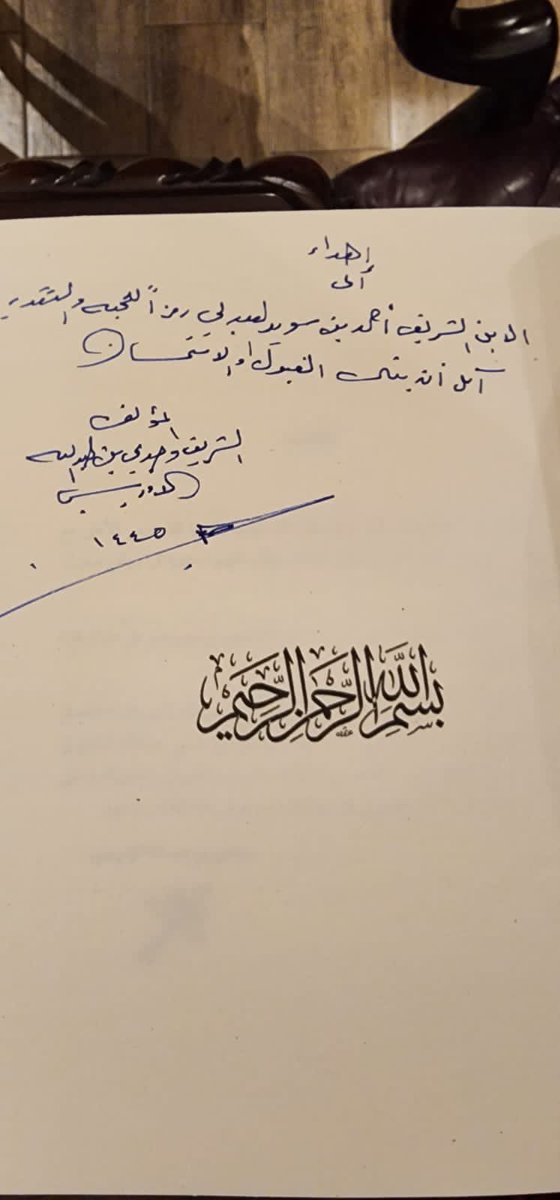 إهداء
إلى
الابن الشريف أحمد بن سويد العبدلي رمزاً للمحبة والتقدير
آمل أن ينال القبول والاستحسان
المؤلف
الشريف وجدي بن عبدالله
الإدريسي
١٤٤٥
بسم الله الرحمن الرحيم